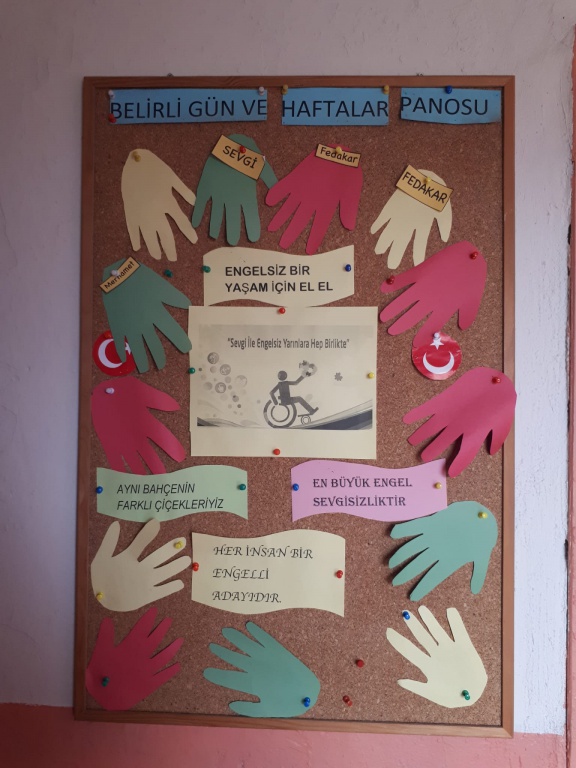 BELİRLİ GÜN VE HAFTALAR PANOSU
SEVGİ
Fedakar
FEDAKAR
Merhamet
ENGELSİZ BİR
YAŞAM İÇİN EL ELE
"Sevgi İle Engelsiz Yarınlara Hep Birlikte"
AYNI BAHÇENİN
FARKLI ÇİÇEKLERİYİZ
EN BÜYÜK ENGEL
SEVGİSİZLİKTİR
HER İNSAN BİR
ENGELLİ
ADAYIDIR.